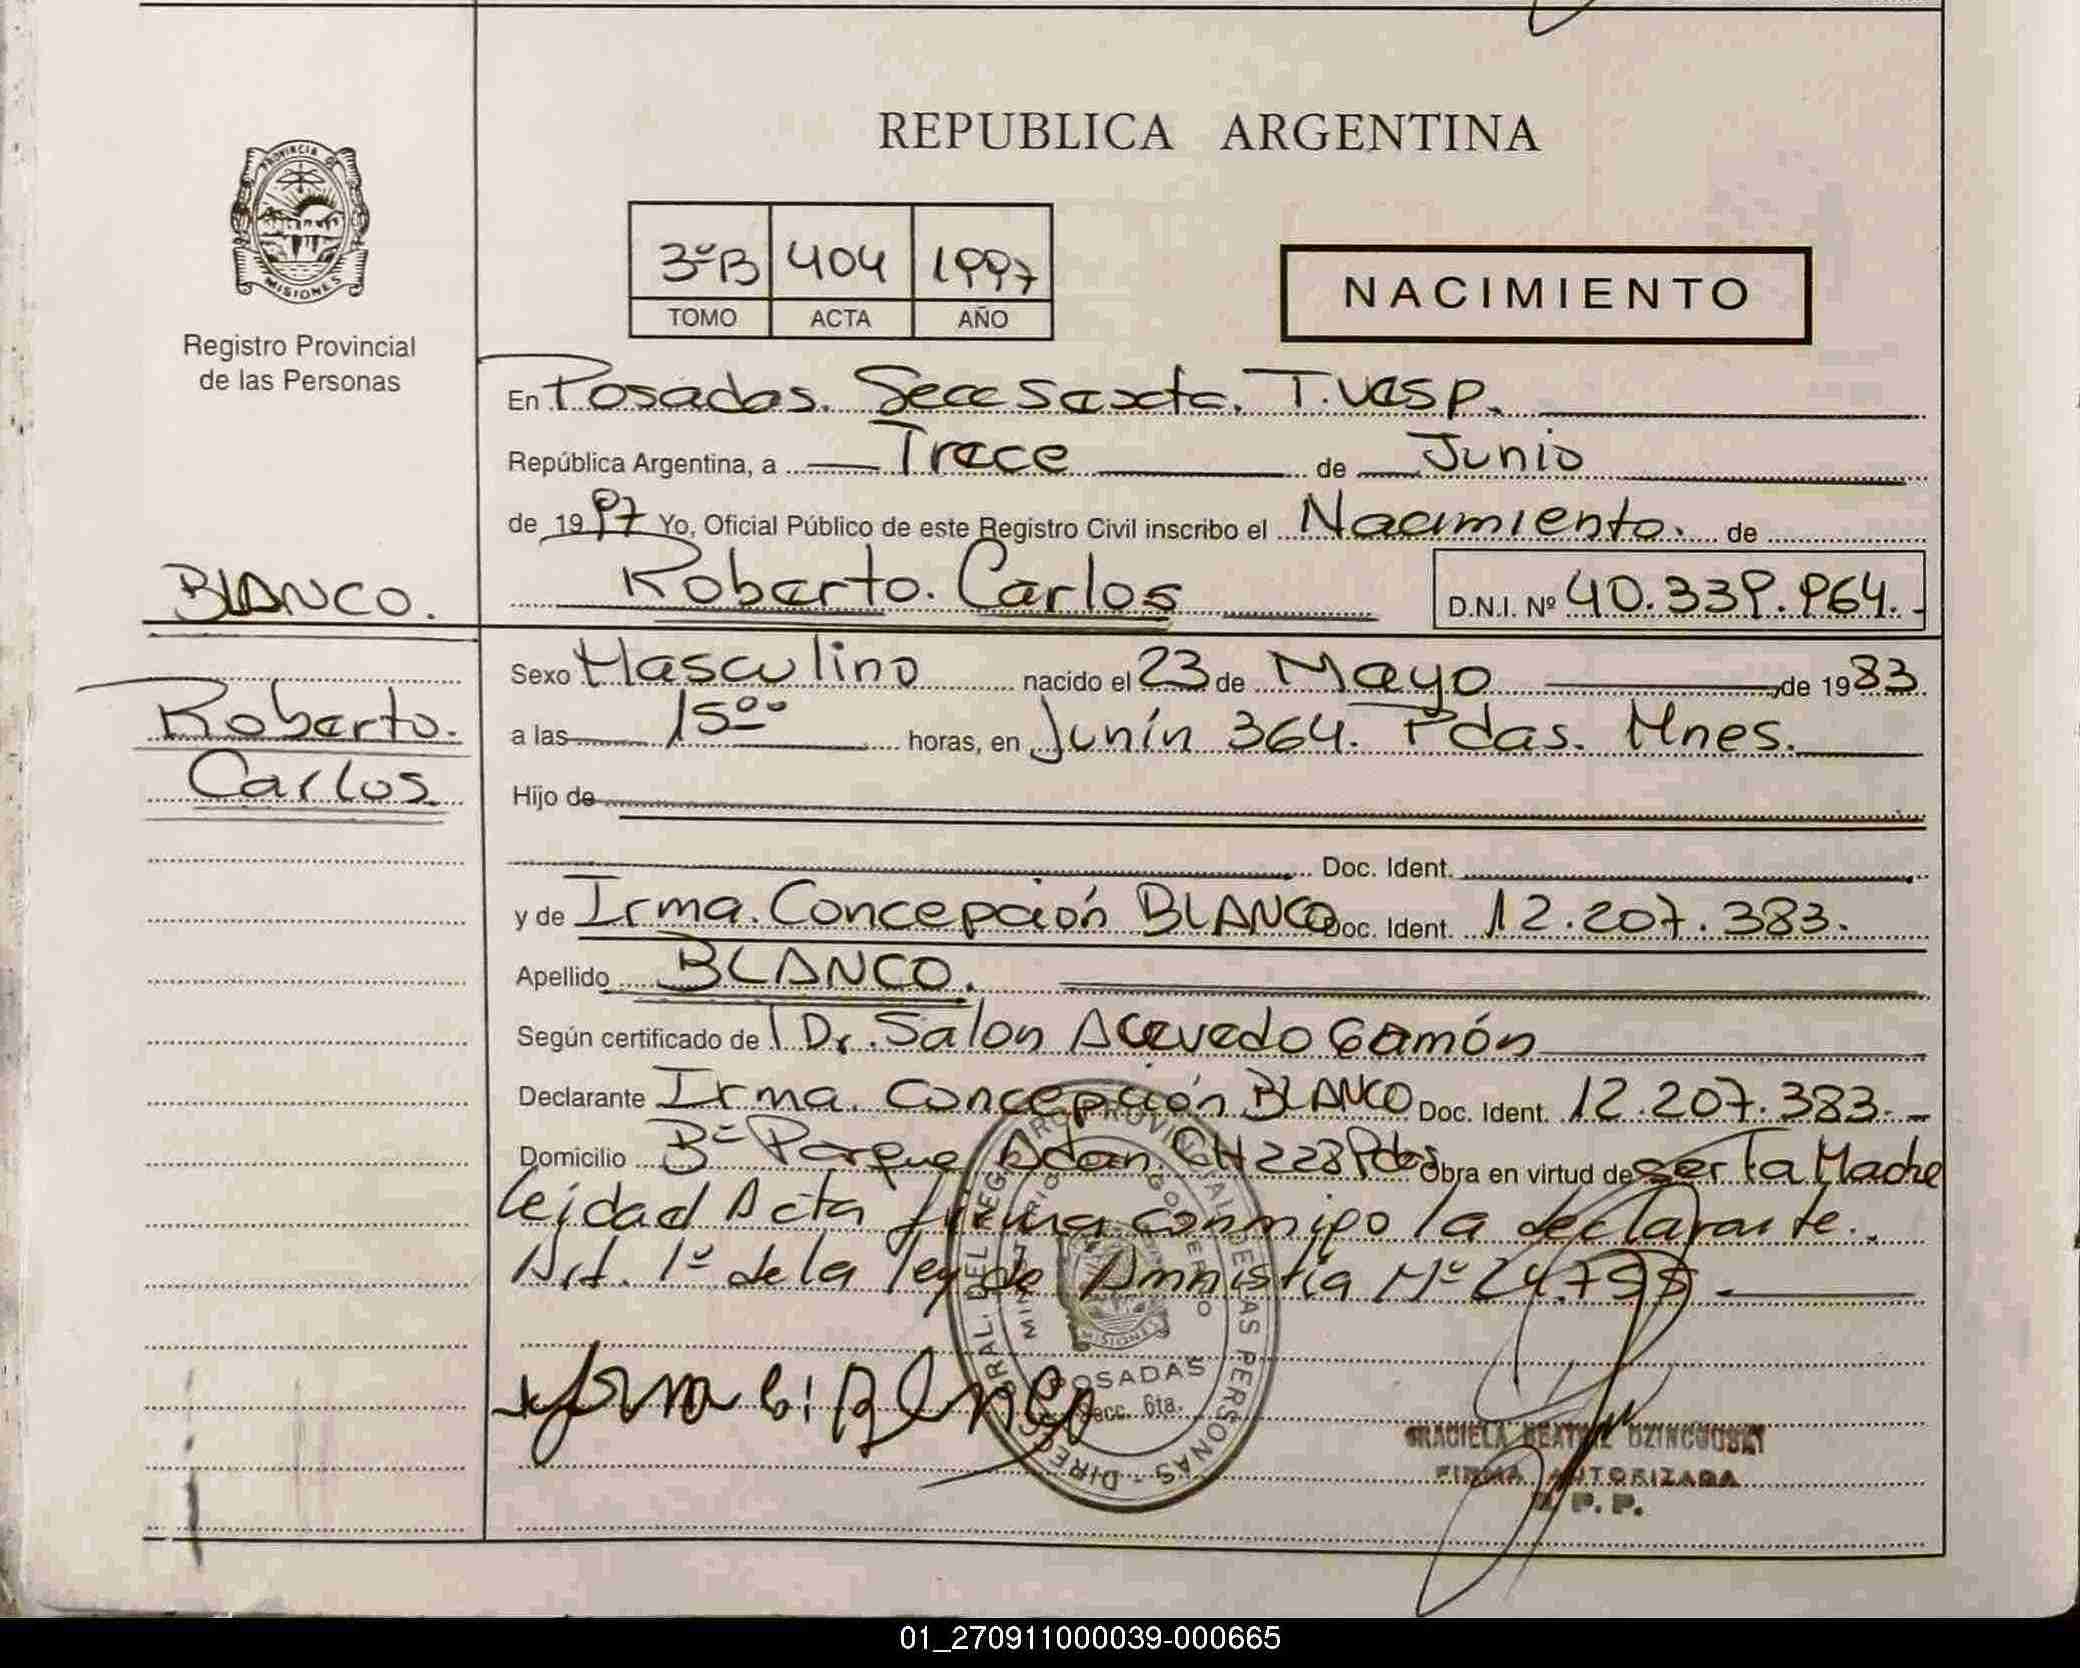 REPUBLICA ARGENTINA
PROVINCIA DE
MISIONES
Registro Provincial
de las Personas
3ºB 404 1997
TOMO ACTA AÑO
NACIMIENTO
En Posadas. Secc Sexta.
República Argentina, a Trece de Junio
de 1997 Yo, Oficial Público de este Registro Civil inscribo el Nacimiento. de
BLANCO.
Roberto. Carlos D.N.I. Nº 40.339.964.
Roberto.
Carlos
Sexo Masculino nacido el 23 de Mayo de 1983
a las 15⁰⁰ horas, en Junín 364. Pdas. Mnes.
Hijo de
Doc. Ident.
y de Irma. Concepción BLANCO Doc. Ident. 12.207.383.
Apellido BLANCO.
Según certificado de Dr. Salon Acevedo Gamón
Declarante Irma. Concepción BLANCO Doc. Ident. 12.207.383.
Domicilio Bº Parque Adam. CH 228 Pdas Obra en virtud de ser la Madre
leida el Acta firma conmigo la declarante.
Art. 1º de la ley de Amnistía Nº
DIRECC. GRAL. DEL REGISTRO PROVINCIAL DE LAS PERSONAS
MINISTERIO GOBIERNO
MISIONES
POSADAS
Secc. 6ta.
GRACIELA BEATRIZ
FIRMA AUTORIZADA
R. P. P.
01_270911000039-000665